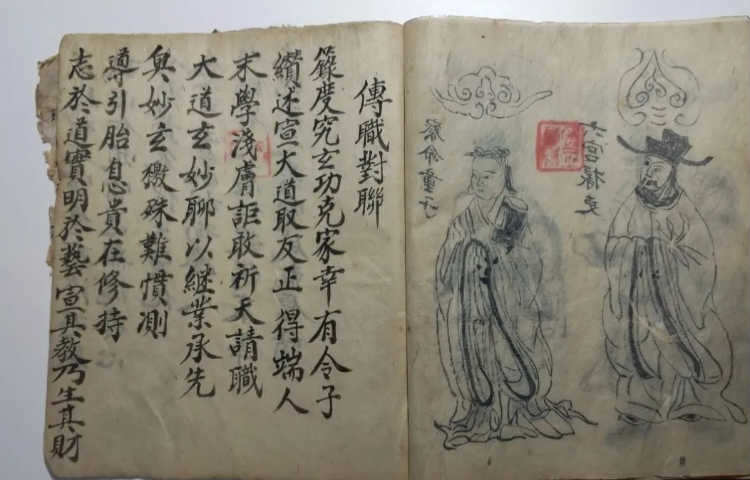 六宮吏
命童子
傳職對聯
籙度究玄功克家幸有令子
纘述宣大道取友正得端人
末學淺膚詎敢祈天請職
大道玄妙聊以継業承先
奥妙玄微殊難慣測
導引胎息貴在修持
志於道實明於藝宣其教乃生其財